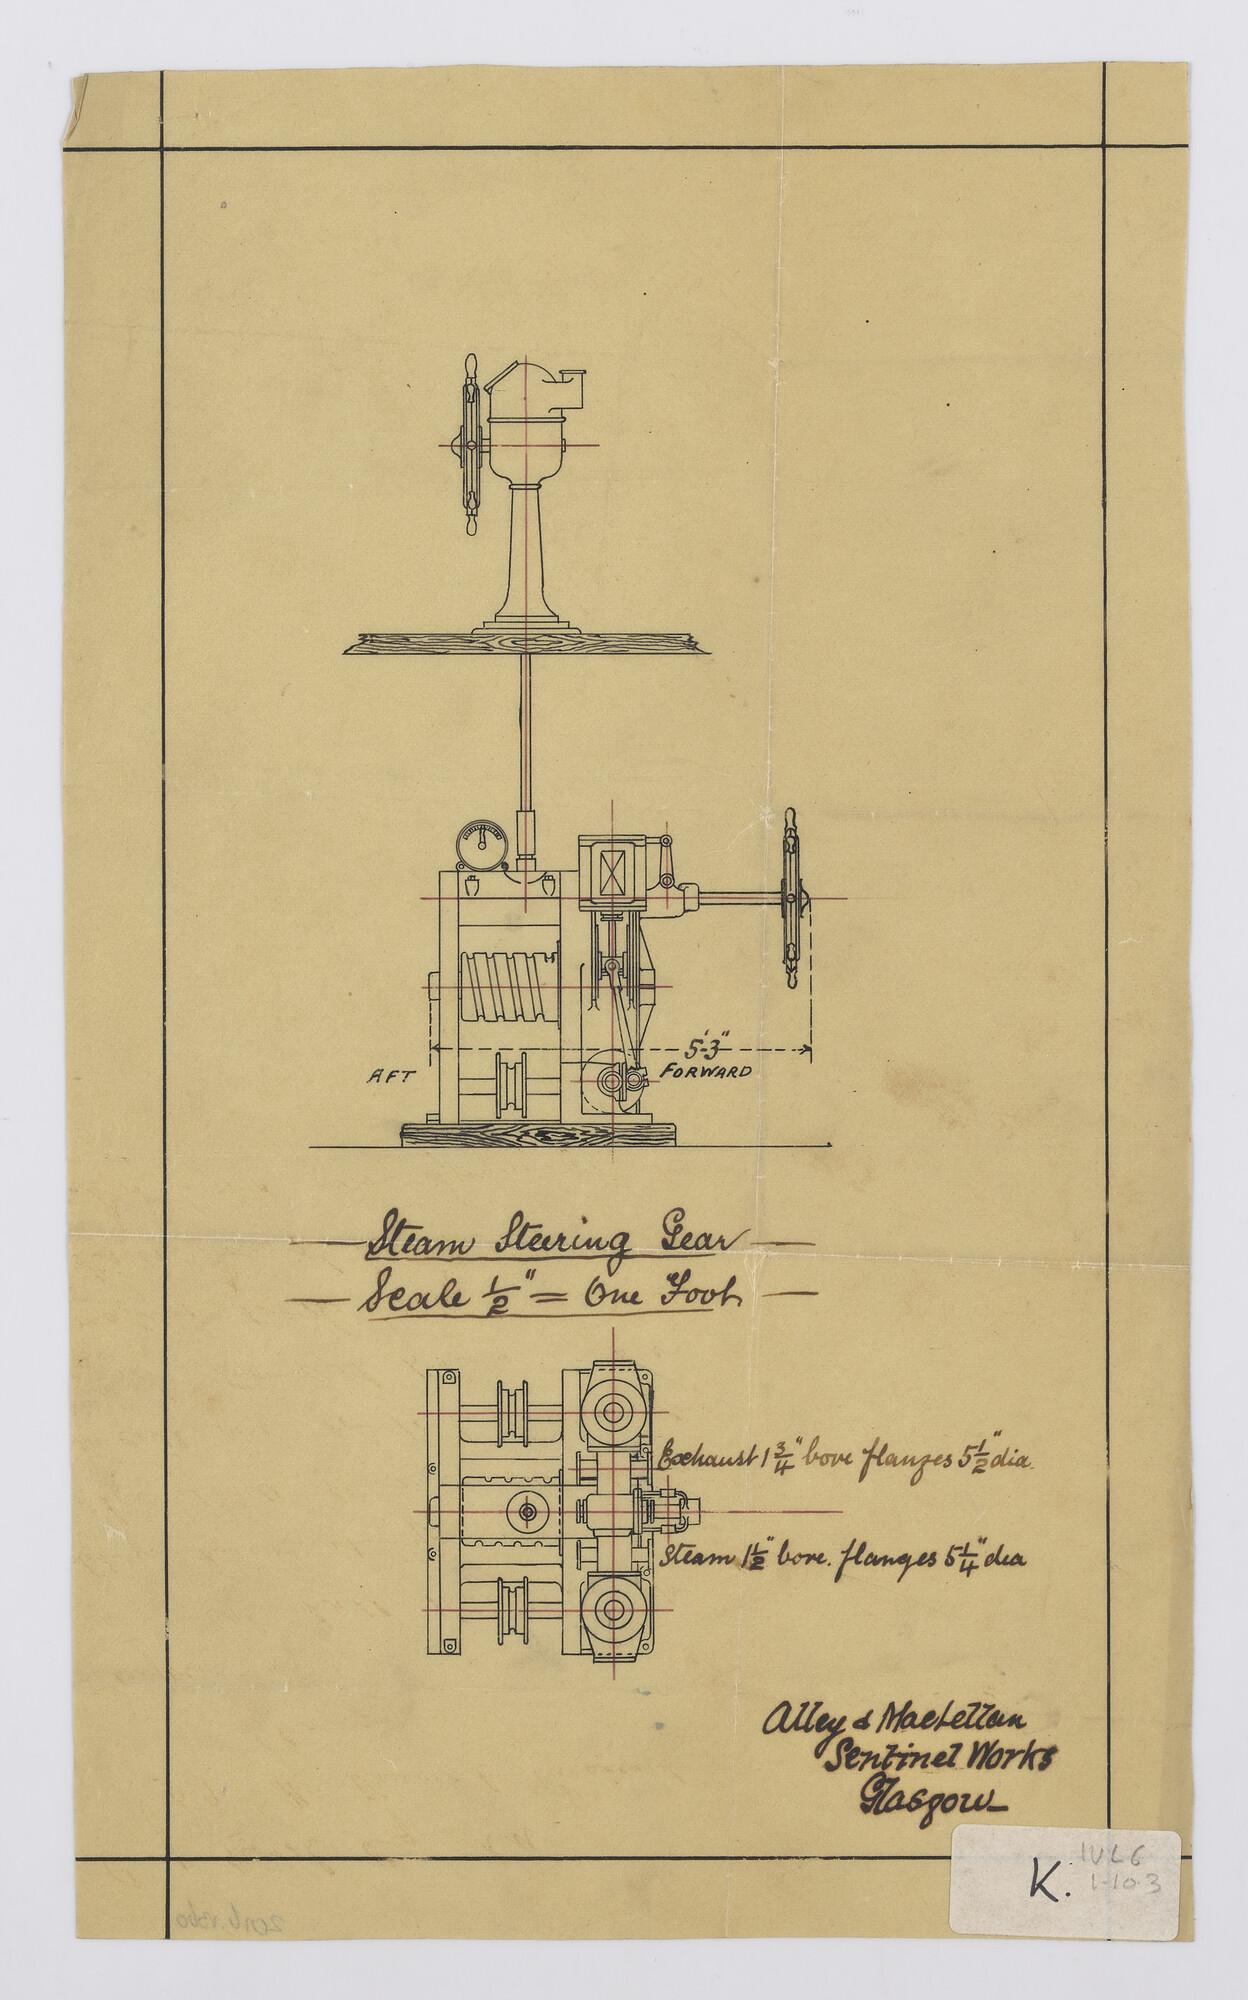 5'-3"
AFT
FORWARD
Steam Steering Gear
Scale 1/2" = One Foot
Exhaust 1 3/4" bore flanges 5 1/2" dia.
Steam 1 1/2" bore. flanges 5 1/4" dia
Alley & MacLellan
Sentinel Works
Glasgow
K.
1-10.3